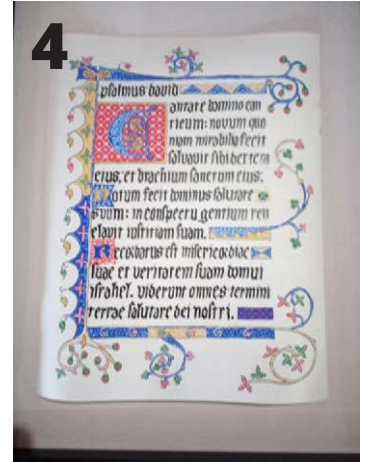 4
psalmus david
Cantate domino can
ticum: novum quo
niam mirabilia fecit
Salvavit sibi dextera
eius; et brachium sanctum eius:
Notum fecit dominus salutare
suum: in conspectu gentium rev
elavit iustitiam suam.
Recordatus est misericordiae
suae et veritatem suam domui
israhel. viderunt omnes termini
terrae salutare dei nostri.